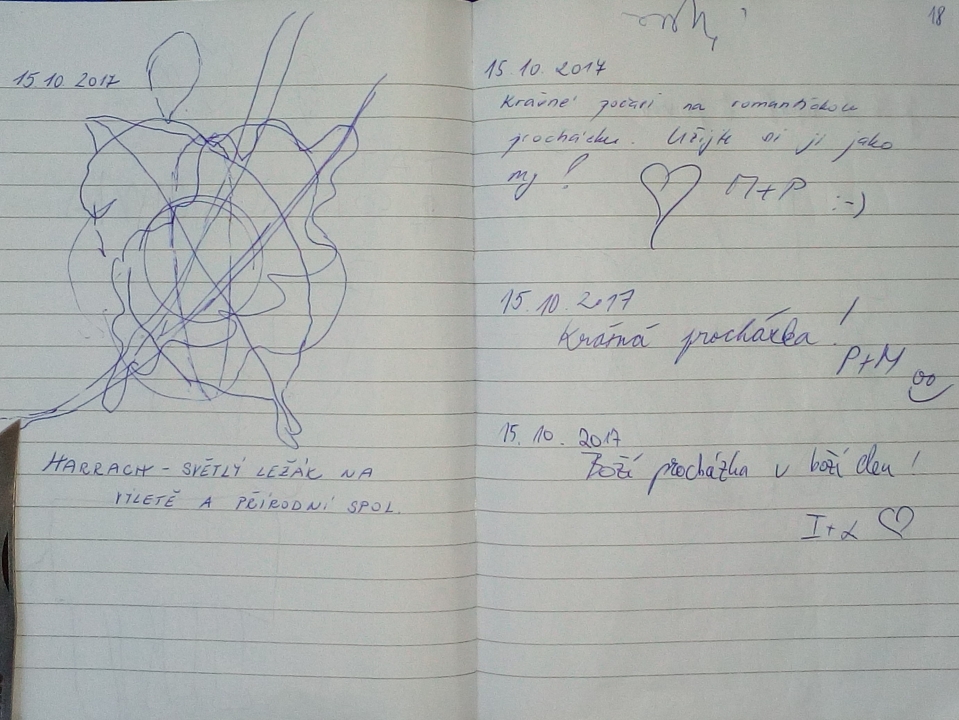 15.10.2017
HARRACH - SVĚTLÝ LEŽÁK NA
VÍLETĚ A PŘÍRODNÍ SPOL.
18
15.10.2017
Krásné počasí na romantickou
procházku. Užijte si ji jako
my!
M+P :-)
15.10.2017
Krásná procházka!
P+M
15.10.2017
Boží procházka v boží den!
I+L